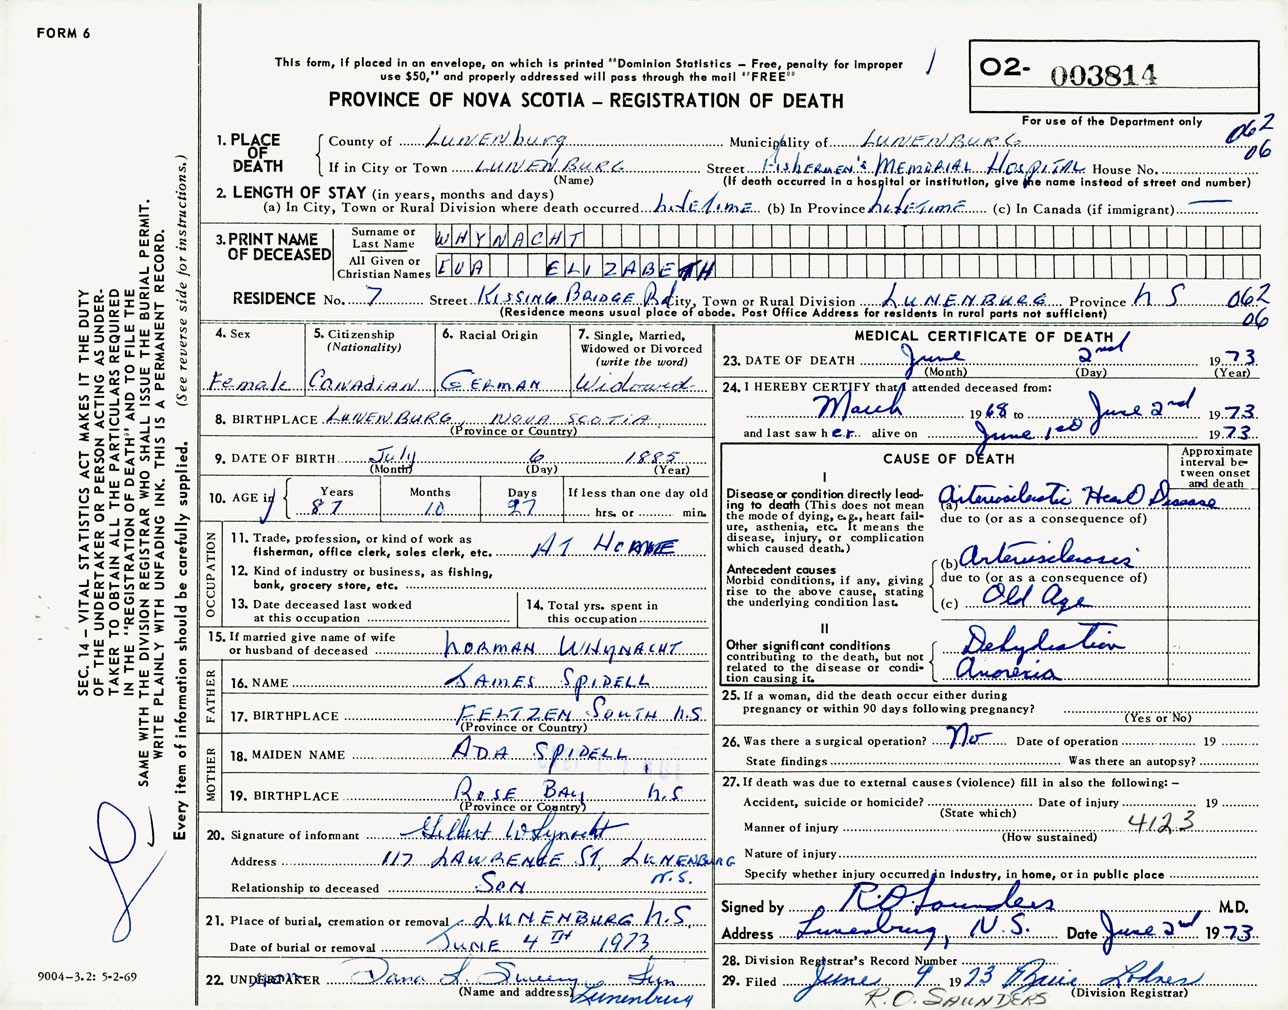 FORM 6
This form, if placed in an envelope, on which is printed "Dominion Statistics – Free, penalty for improper
use $50," and properly addressed will pass through the mail "FREE"
PROVINCE OF NOVA SCOTIA – REGISTRATION OF DEATH
O2- 003814
For use of the Department only
062
06
1. PLACE OF DEATH
County of LUNENBURG Municipality of LUNENBURG
If in City or Town LUNENBURG Street FISHERMEN'S MEMORIAL HOSPITAL House No.
(Name) (If death occurred in a hospital or institution, give the name instead of street and number)
2. LENGTH OF STAY (in years, months and days)
(a) In City, Town or Rural Division where death occurred LIFETIME (b) In Province LIFETIME (c) In Canada (if immigrant) —
3. PRINT NAME OF DECEASED
Surname or Last Name WHYNACHT
All Given or Christian Names EVA ELIZABETH
RESIDENCE No. 7 Street KISSING BRIDGE Rd City, Town or Rural Division LUNENBURG Province N S 062
(Residence means usual place of abode. Post Office Address for residents in rural parts not sufficient) 06
4. Sex Female
5. Citizenship (Nationality) CANADIAN
6. Racial Origin GERMAN
7. Single, Married, Widowed or Divorced (write the word) Widowed
8. BIRTHPLACE LUNENBURG, NOVA SCOTIA
(Province or Country)
9. DATE OF BIRTH July 6 1885
(Month) (Day) (Year)
10. AGE in Years 87 Months 10 Days 27 If less than one day old hrs. or min.
OCCUPATION
11. Trade, profession, or kind of work as fisherman, office clerk, sales clerk, etc. AT HOME
12. Kind of industry or business, as fishing, bank, grocery store, etc.
13. Date deceased last worked at this occupation
14. Total yrs. spent in this occupation
15. If married give name of wife or husband of deceased NORMAN WHYNACHT
FATHER
16. NAME JAMES SPIDELL
17. BIRTHPLACE FELTZEN SOUTH N.S
(Province or Country)
MOTHER
18. MAIDEN NAME ADA SPIDELL
19. BIRTHPLACE ROSE BAY N.S
(Province or Country)
20. Signature of informant Gilbert Whynacht
Address 117 LAWRENCE ST. LUNENBURG N.S.
Relationship to deceased SON
21. Place of burial, cremation or removal LUNENBURG N.S.
Date of burial or removal JUNE 4 TH 1973
22. UNDERTAKER Dana L. Sweeny
(Name and address) Lunenburg
MEDICAL CERTIFICATE OF DEATH
23. DATE OF DEATH June 2nd 1973
(Month) (Day) (Year)
24. I HEREBY CERTIFY that I attended deceased from:
March 1968 to June 2nd 1973
and last saw her alive on June 1st 1973
CAUSE OF DEATH
Approximate interval between onset and death
I
Disease or condition directly leading to death (This does not mean the mode of dying, e.g., heart failure, asthenia, etc. It means the disease, injury, or complication which caused death.)
(a) Arteriosclerotic Heart Disease
due to (or as a consequence of)
Antecedent causes
Morbid conditions, if any, giving rise to the above cause, stating the underlying condition last.
(b) Arteriosclerosis
due to (or as a consequence of)
(c) Old Age
II
Other significant conditions contributing to the death, but not related to the disease or condition causing it.
Dehydration
Anorexia
25. If a woman, did the death occur either during
pregnancy or within 90 days following pregnancy?
(Yes or No)
26. Was there a surgical operation? No Date of operation 19
State findings Was there an autopsy?
27. If death was due to external causes (violence) fill in also the following: –
Accident, suicide or homicide? Date of injury 19
(State which)
Manner of injury 4123
(How sustained)
Nature of injury
Specify whether injury occurred in industry, in home, or in public place
Signed by R.O. Saunders M.D.
Address Lunenburg, N.S. Date June 2nd 1973
28. Division Registrar's Record Number
29. Filed June 9 1973
(Division Registrar)
R.O. SAUNDERS
SEC. 14 – VITAL STATISTICS ACT MAKES IT THE DUTY
OF THE UNDERTAKER OR PERSON ACTING AS UNDER-
TAKER TO OBTAIN ALL THE PARTICULARS REQUIRED
IN THE "REGISTRATION OF DEATH" AND TO FILE THE
SAME WITH THE DIVISION REGISTRAR WHO SHALL ISSUE THE BURIAL PERMIT.
WRITE PLAINLY WITH UNFADING INK. THIS IS A PERMANENT RECORD.
Every item of information should be carefully supplied. (See reverse side for instructions.)
9004–3.2: 5-2-69